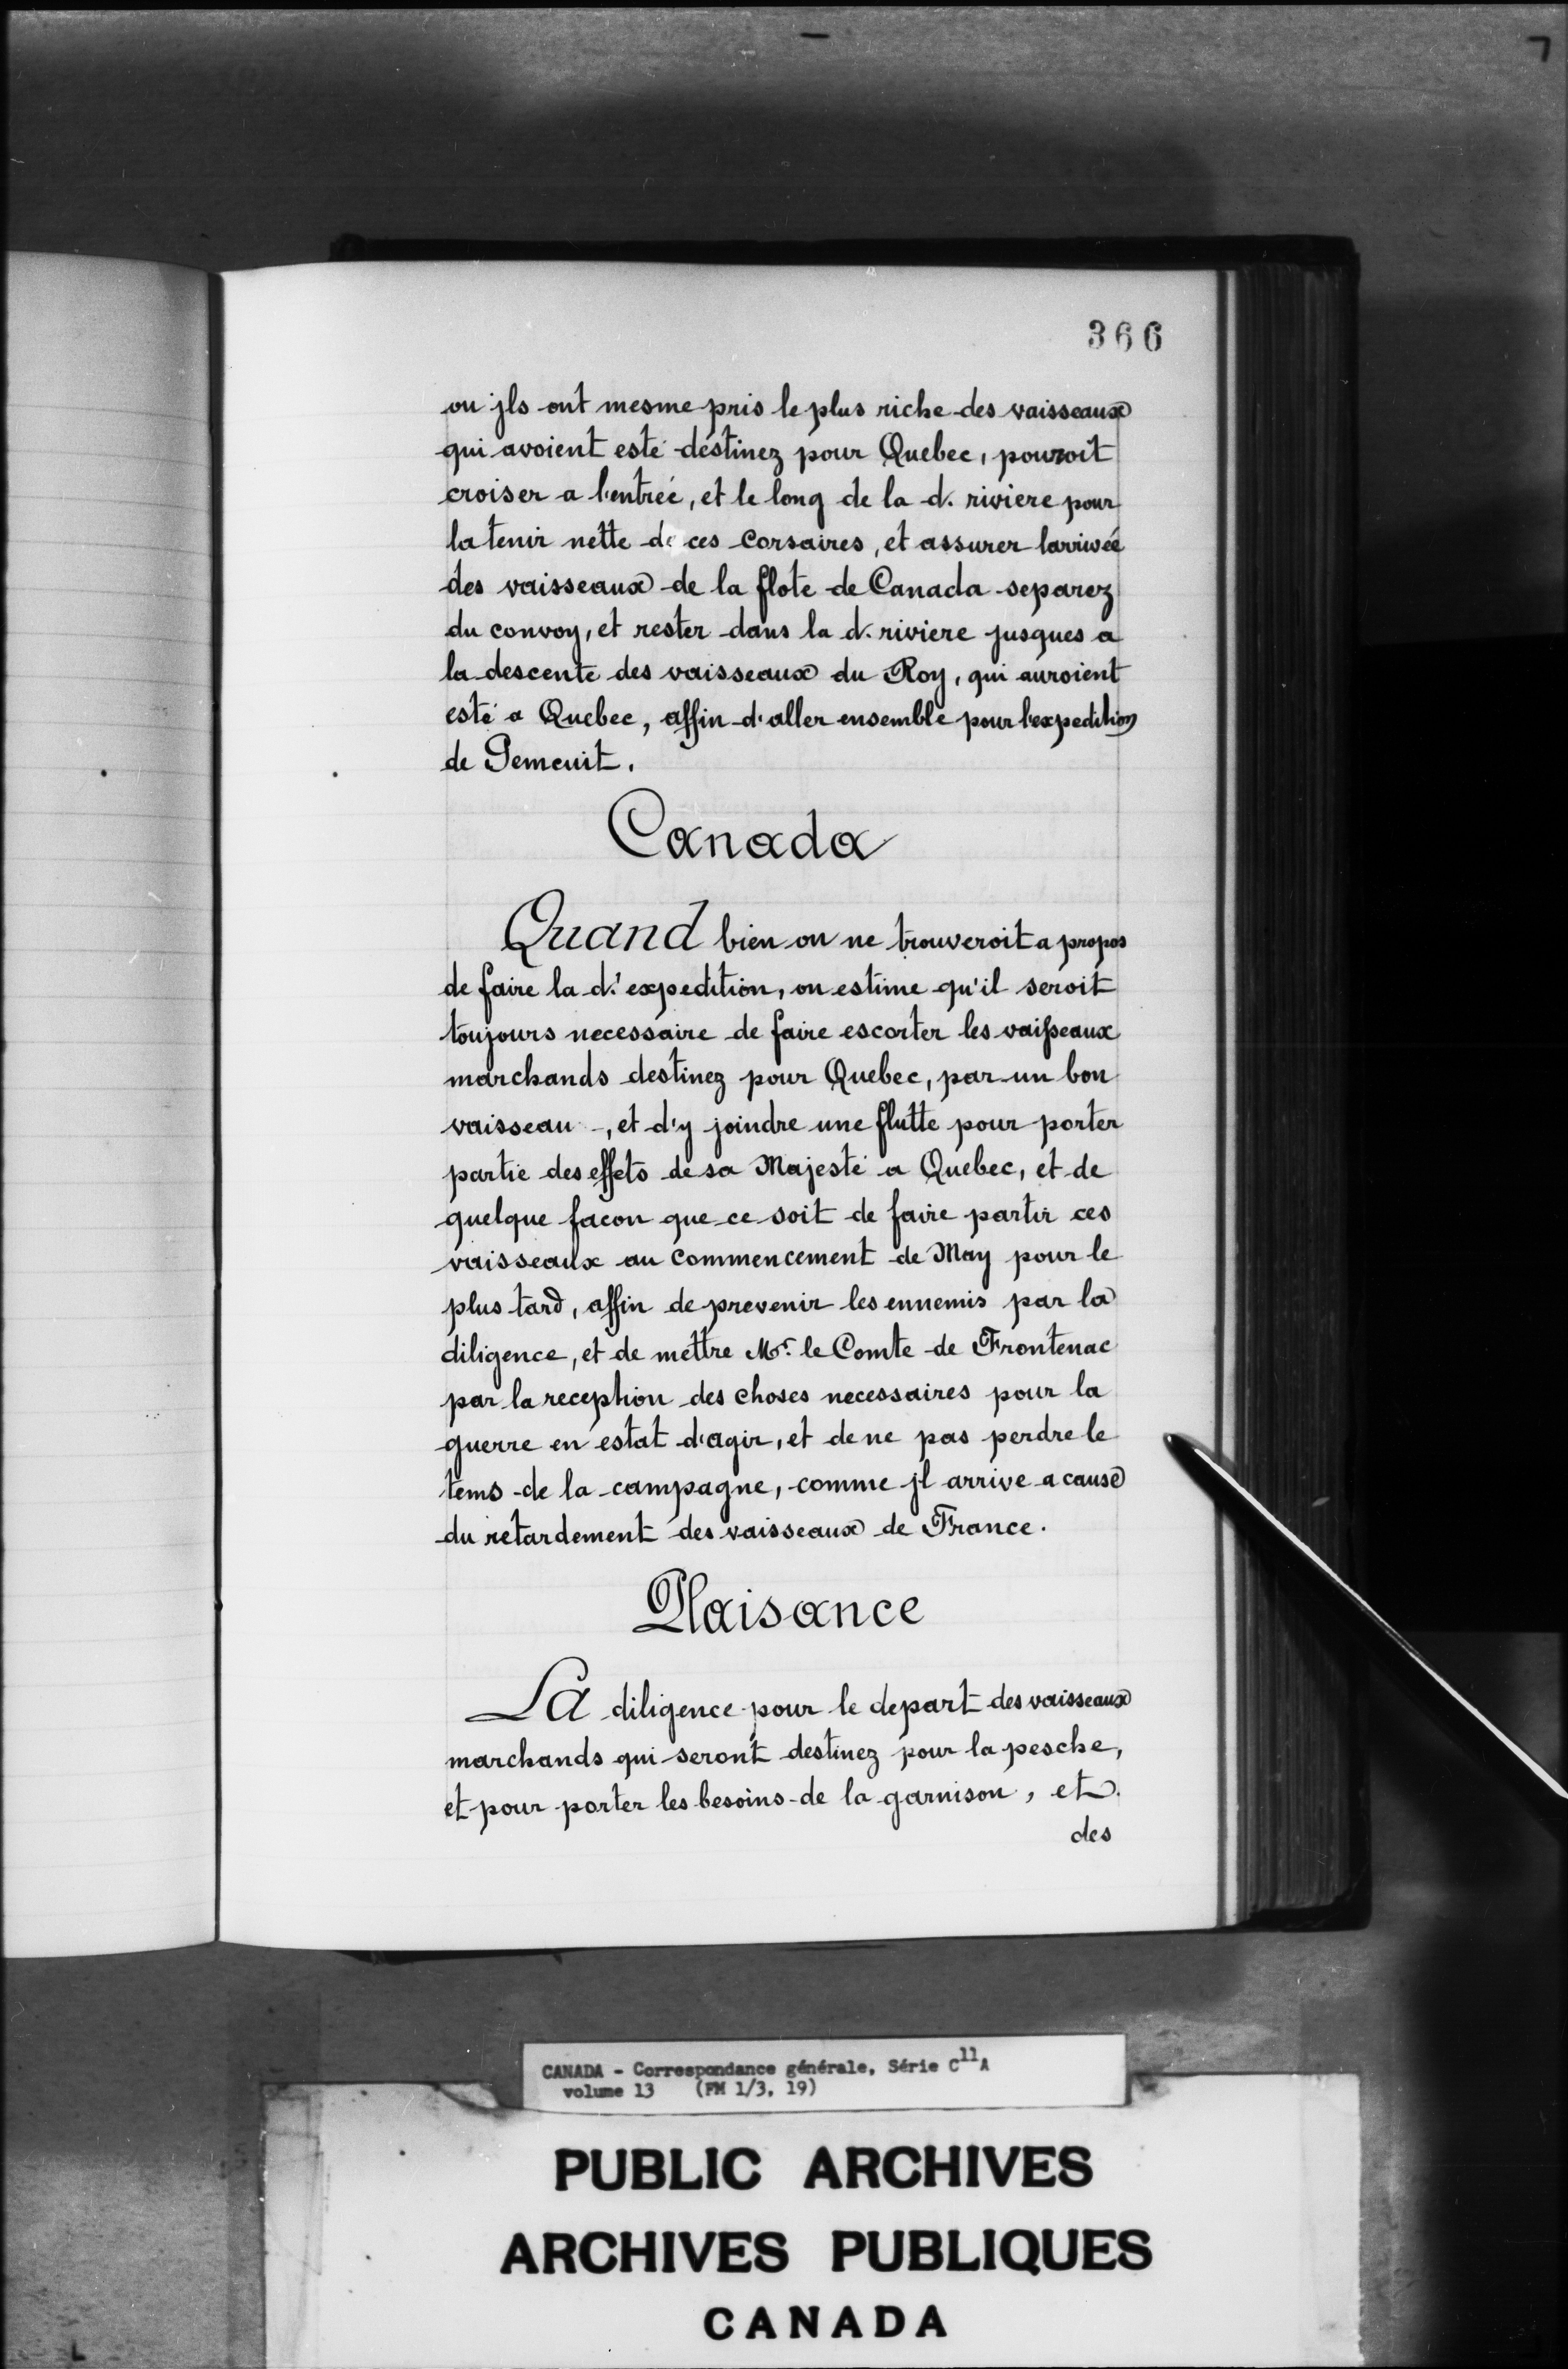 366
ou jls ont mesme pris le plus riche des vaisseaux
qui avoient esté destinez pour Quebec, pouroit
croiser a l'entreé, et le long de la d. riviere pour
la tenir nette de ces Corsaires, et assurer larriveé
des vaisseaux de la flote de Canada separez
du convoy, et rester dans la d. riviere jusques a
la descente des vaisseaux du Roy, qui auroient
esté a Quebec, affin d'aller ensemble pour l'expedition
de Pemcuit.
Canada
Quand bien on ne trouveroit a propos
de faire la d.' expedition, on estime qu'il seroit
toujours necessaire de faire escorter les vaisseaux
marchands destinez pour Quebec, par un bon
vaisseau -, et d'y joindre une flutte pour porter
partie des effets de sa Majesté a Quebec, et de
quelque facon que ce soit de faire partir ces
vaisseaux au commencement de May pour le
plus tard, affin de prevenir les ennemis par la
diligence, et de mettre Mr. le Comte de Frontenac
par la reception des choses necessaires pour la
guerre en estat d'agir, et de ne pas perdre le
tems de la campagne, comme jl arrive a cause
du retardement des vaisseaux de France.
Plaisance
La diligence pour le depart des vaisseaux
marchands qui seront destinez pour la pesche,
et pour porter les besoins de la garnison, et
des
CANADA - Correspondance générale, Série C11A
volume 13 (FM 1/3, 19)
PUBLIC ARCHIVES
ARCHIVES PUBLIQUES
CANADA